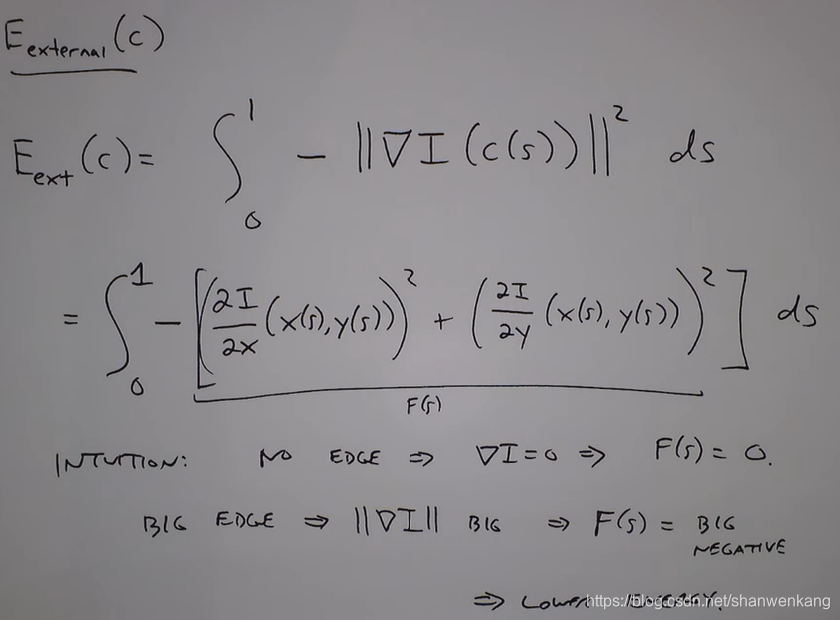 E_external(c)
E_ext(c) = ∫₀¹ − ||∇I(c(s))||² ds
= ∫₀¹ − [(∂I/∂x (x(s), y(s)))² + (∂I/∂y (x(s), y(s)))²] ds
F(s)
INTUITION: NO EDGE ⇒ ∇I = 0 ⇒ F(s) = 0.
BIG EDGE ⇒ ||∇I|| BIG ⇒ F(s) = BIG
NEGATIVE
⇒ LOWER ENERGY.
https://blog.csdn.net/shanwenkang